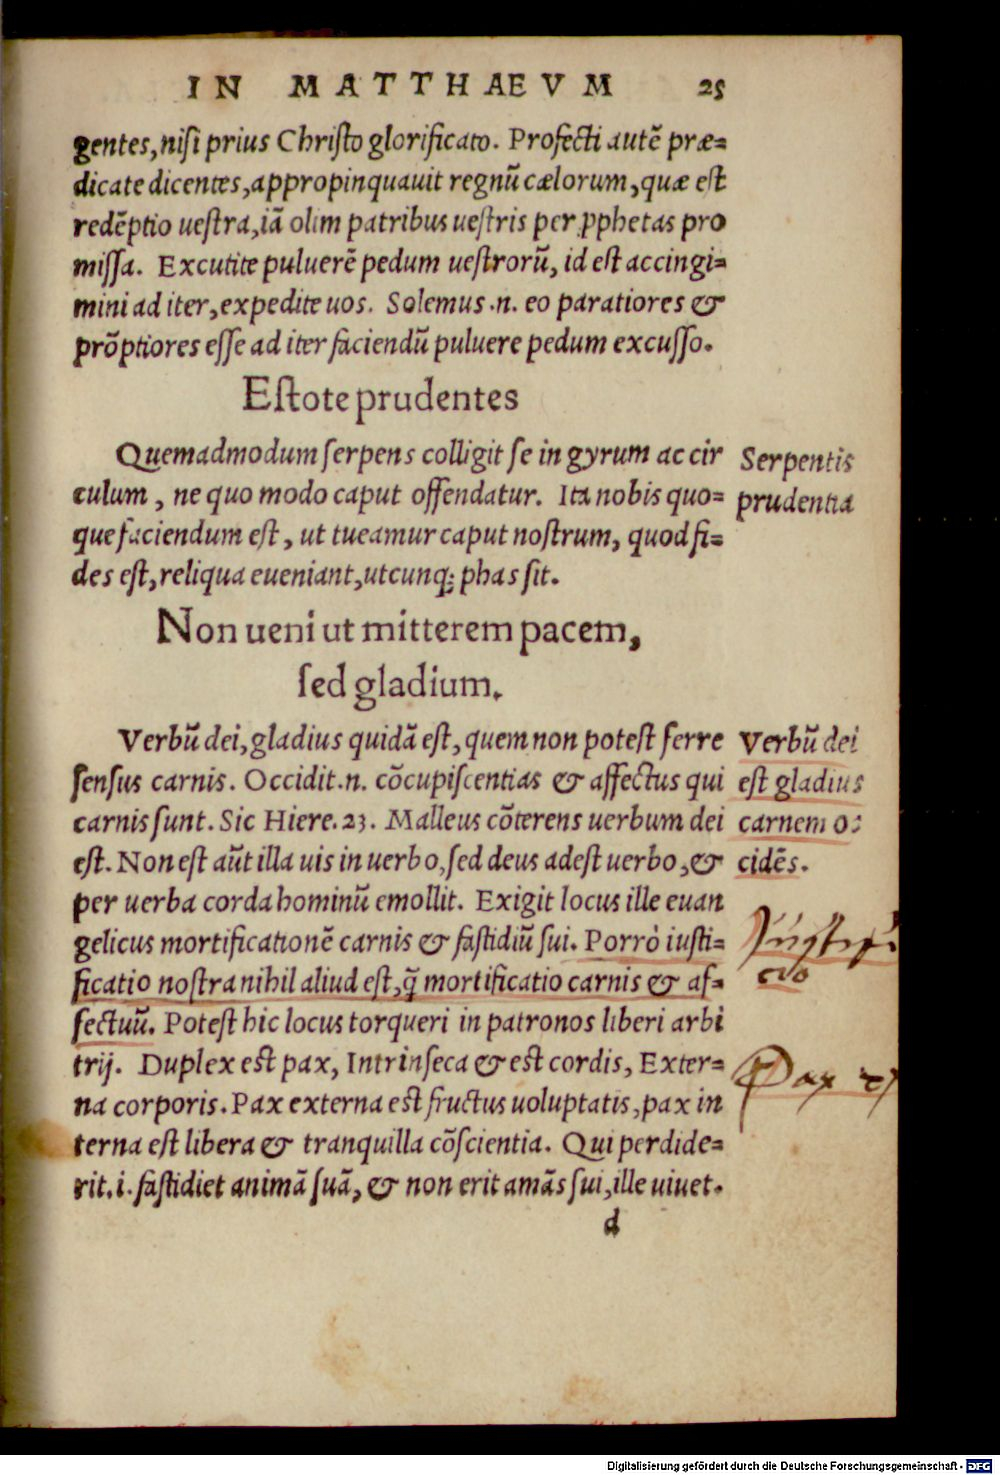 IN MATTHAEVM 25
gentes, nisi prius Christo glorificato. Profecti autē præ=
dicate dicentes, appropinquauit regnū cælorum, quæ est
redēptio uestra, iā olim patribus uestris per ꝓphetas pro
missa. Excutite puluerē pedum uestrorū, id est accingi=
mini ad iter, expedite uos. Solemus .n. eo paratiores &
prōptiores esse ad iter faciendū puluere pedum excusso.
Estote prudentes
Quemadmodum serpens colligit se in gyrum ac cir
culum, ne quo modo caput offendatur. Ita nobis quo=
que faciendum est, ut tueamur caput nostrum, quod fi=
des est, reliqua eueniant, utcunq; phas sit.
Serpentis
prudentia
Non ueni ut mitterem pacem,
sed gladium.
Verbū dei, gladius quidā est, quem non potest ferre
sensus carnis. Occidit .n. cōcupiscentias & affectus qui
carnis sunt. Sic Hiere. 23. Malleus cōterens uerbum dei
est. Non est aūt illa uis in uerbo, sed deus adest uerbo, &
per uerba corda hominū emollit. Exigit locus ille euan
gelicus mortificationē carnis & fastidiū sui. Porrò iusti=
ficatio nostra nihil aliud est, q̄ mortificatio carnis & af=
fectuū. Potest hic locus torqueri in patronos liberi arbi
trij. Duplex est pax, Intrinseca & est cordis, Exter=
na corporis. Pax externa est fructus uoluptatis, pax in
terna est libera & tranquilla cōscientia. Qui perdide=
rit .i. fastidiet animā suā, & non erit amās sui, ille uiuet.
Verbū dei
est gladius
carnem oc
cidēs.
Pax
d
Digitalisierung gefördert durch die Deutsche Forschungsgemeinschaft - DFG